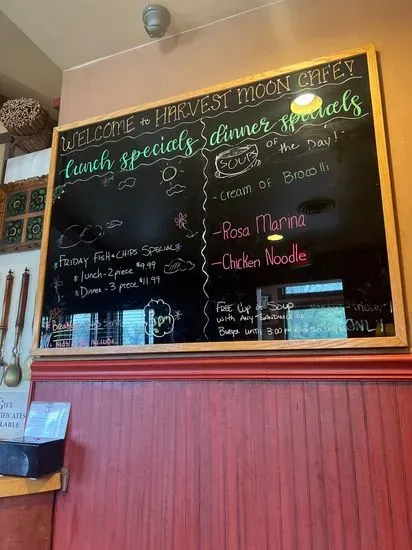 WELCOME to HARVEST MOON CAFE!
lunch specials
* FRIDAY FISH & CHIPS SPECIALS
* lunch - 2 piece $9.99
* Dinner - 3 piece $11.99
dinner specials
SOUP of the Day!
- Cream of Brocolli
- Rosa Marina
- Chicken Noodle
FREE CUP of SOUP
WITH ANY SANDWICH OR
BURGER UNTIL 3:00 PM
ONLY
GIFT